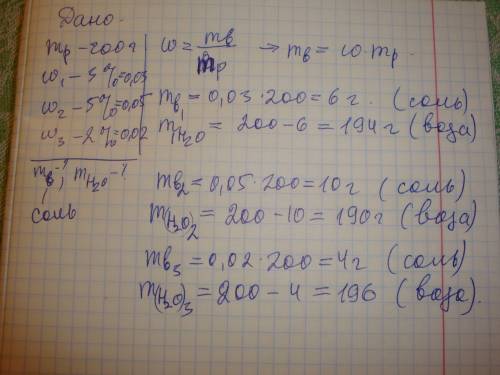 Дано.
mр - 200г
ω₁ - 3% = 0,03
ω₂ - 5% = 0,05
ω₃ - 2% = 0,02
mв - ?, mH₂O - ?
соль
ω = mв / mр → mв = ω · mр
mв₁ = 0,03 · 200 = 6 г. (соль)
mH₂O = 200 - 6 = 194 г (воза)
mв₂ = 0,05 · 200 = 10 г (соль)
m(H₂O)₂ = 200 - 10 = 190 г (воза)
mв₃ = 0,02 · 200 = 4 г (соль)
m(H₂O)₃ = 200 - 4 = 196 (воза).